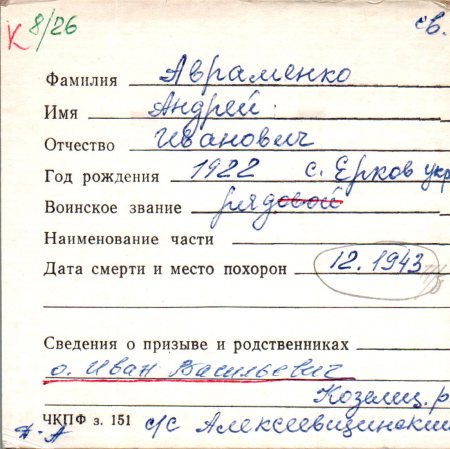 К 8/26 св.
Фамилия Авраменко
Имя Андрей
Отчество Иванович
Год рождения 1922 с. Ерков укр
Воинское звание рядовой
Наименование части
Дата смерти и место похорон 12.1943
Сведения о призыве и родственниках
о. Иван Васильевич
Козелец. р.
ЧКПФ з. 151 с/с Алексеевщинский